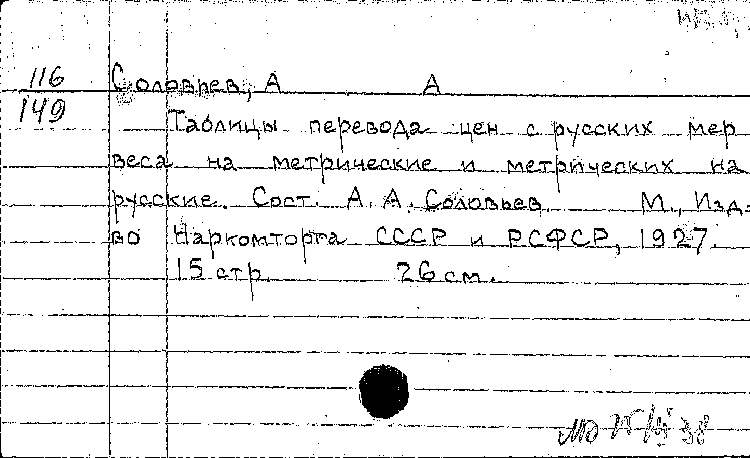 116
149
Соловьев, А А
Таблицы перевода цен с русских мер
веса на метрические и метрических на
русские. Сост. А. А. Соловьев. М., Изд-
во Наркомторга СССР и РСФСР, 1927.
15 стр. 26 см.